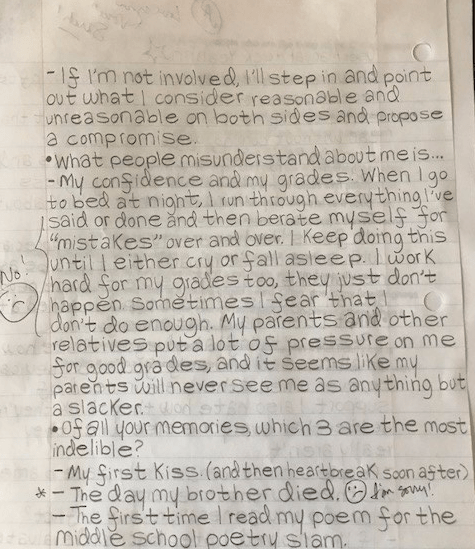 - If I'm not involved, I'll step in and point
out what I consider reasonable and
unreasonable on both sides and propose
a compromise.
• What people misunderstand about me is...
- My confidence and my grades. When I go
to bed at night, I run through everything I've
said or done and then berate myself for
"mistakes" over and over. I keep doing this
until I either cry or fall asleep. I work
No!
hard for my grades too, they just don't
happen. Sometimes I fear that I
don't do enough. My parents and other
relatives put a lot of pressure on me
for good grades, and it seems like my
parents will never see me as anything but
a slacker.
• Of all your memories, which 3 are the most
indelible?
- My first kiss. (and then heartbreak soon after)
* - The day my brother died. I'm sorry!
- The first time I read my poem for the
middle school poetry slam.